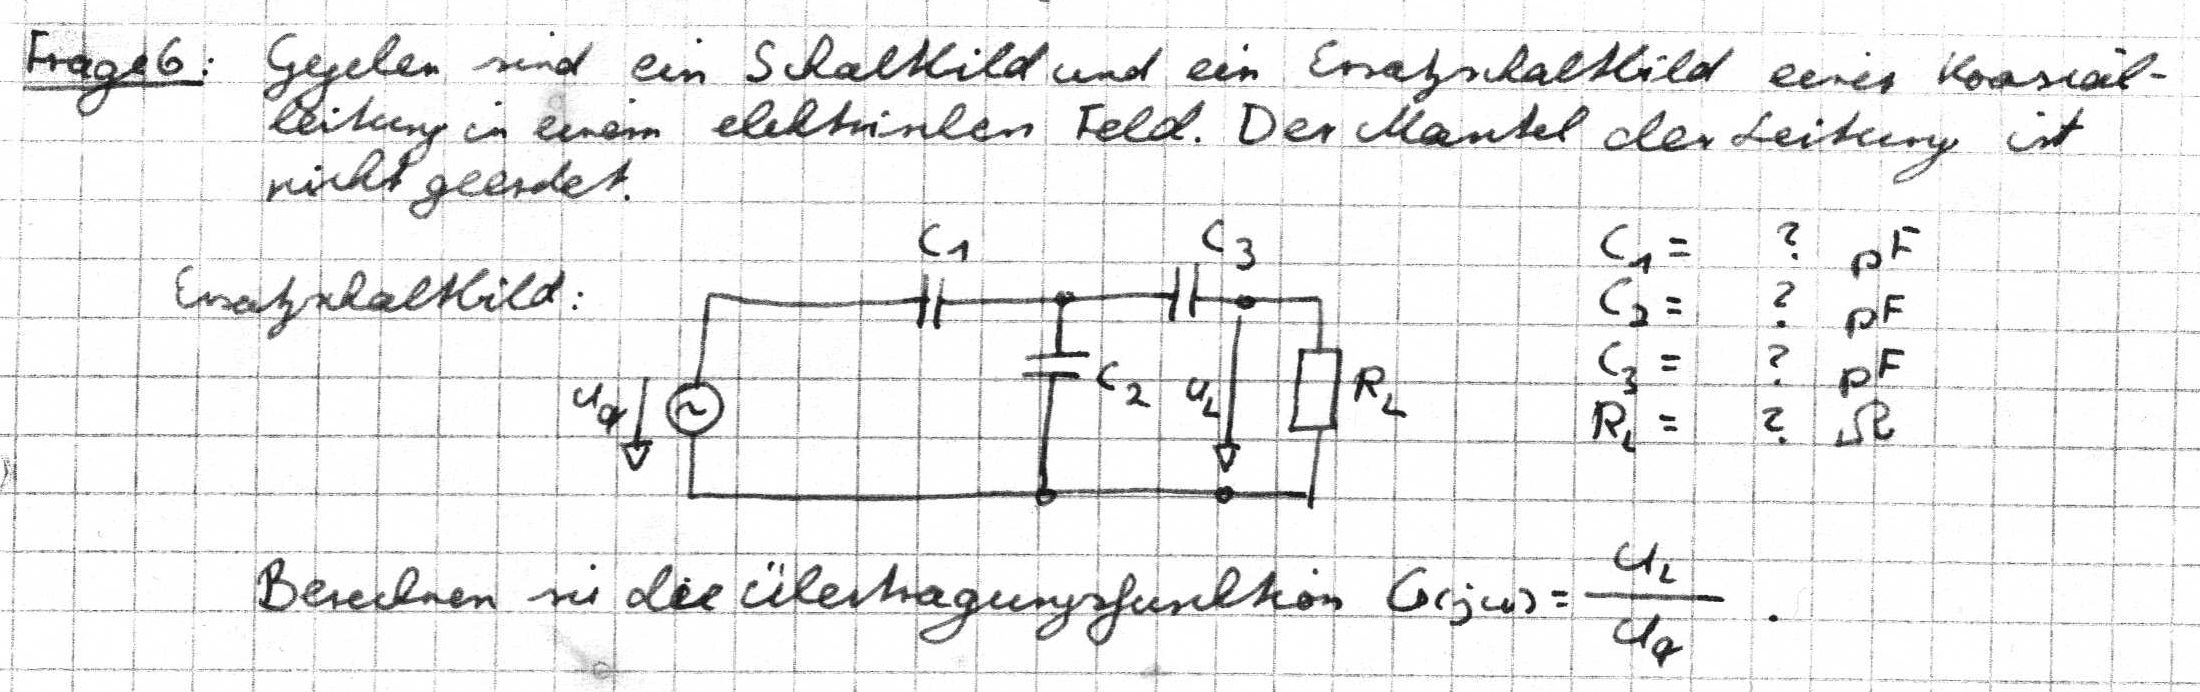 Frage 6: Gegeben sind ein Schaltbild und ein Ersatzschaltbild einer Koaxial-
leitung in einem elektrischen Feld. Der Mantel der Leitung ist
nicht geerdet.
C1 C3 C1 = ? pF
Ersatzschaltbild: C2 = ? pF
C3 = ? pF
uq ~ C2 uL RL RL = ? Ω
Berechnen sie die Übertragungsfunktion G(jω) = uL / uq .